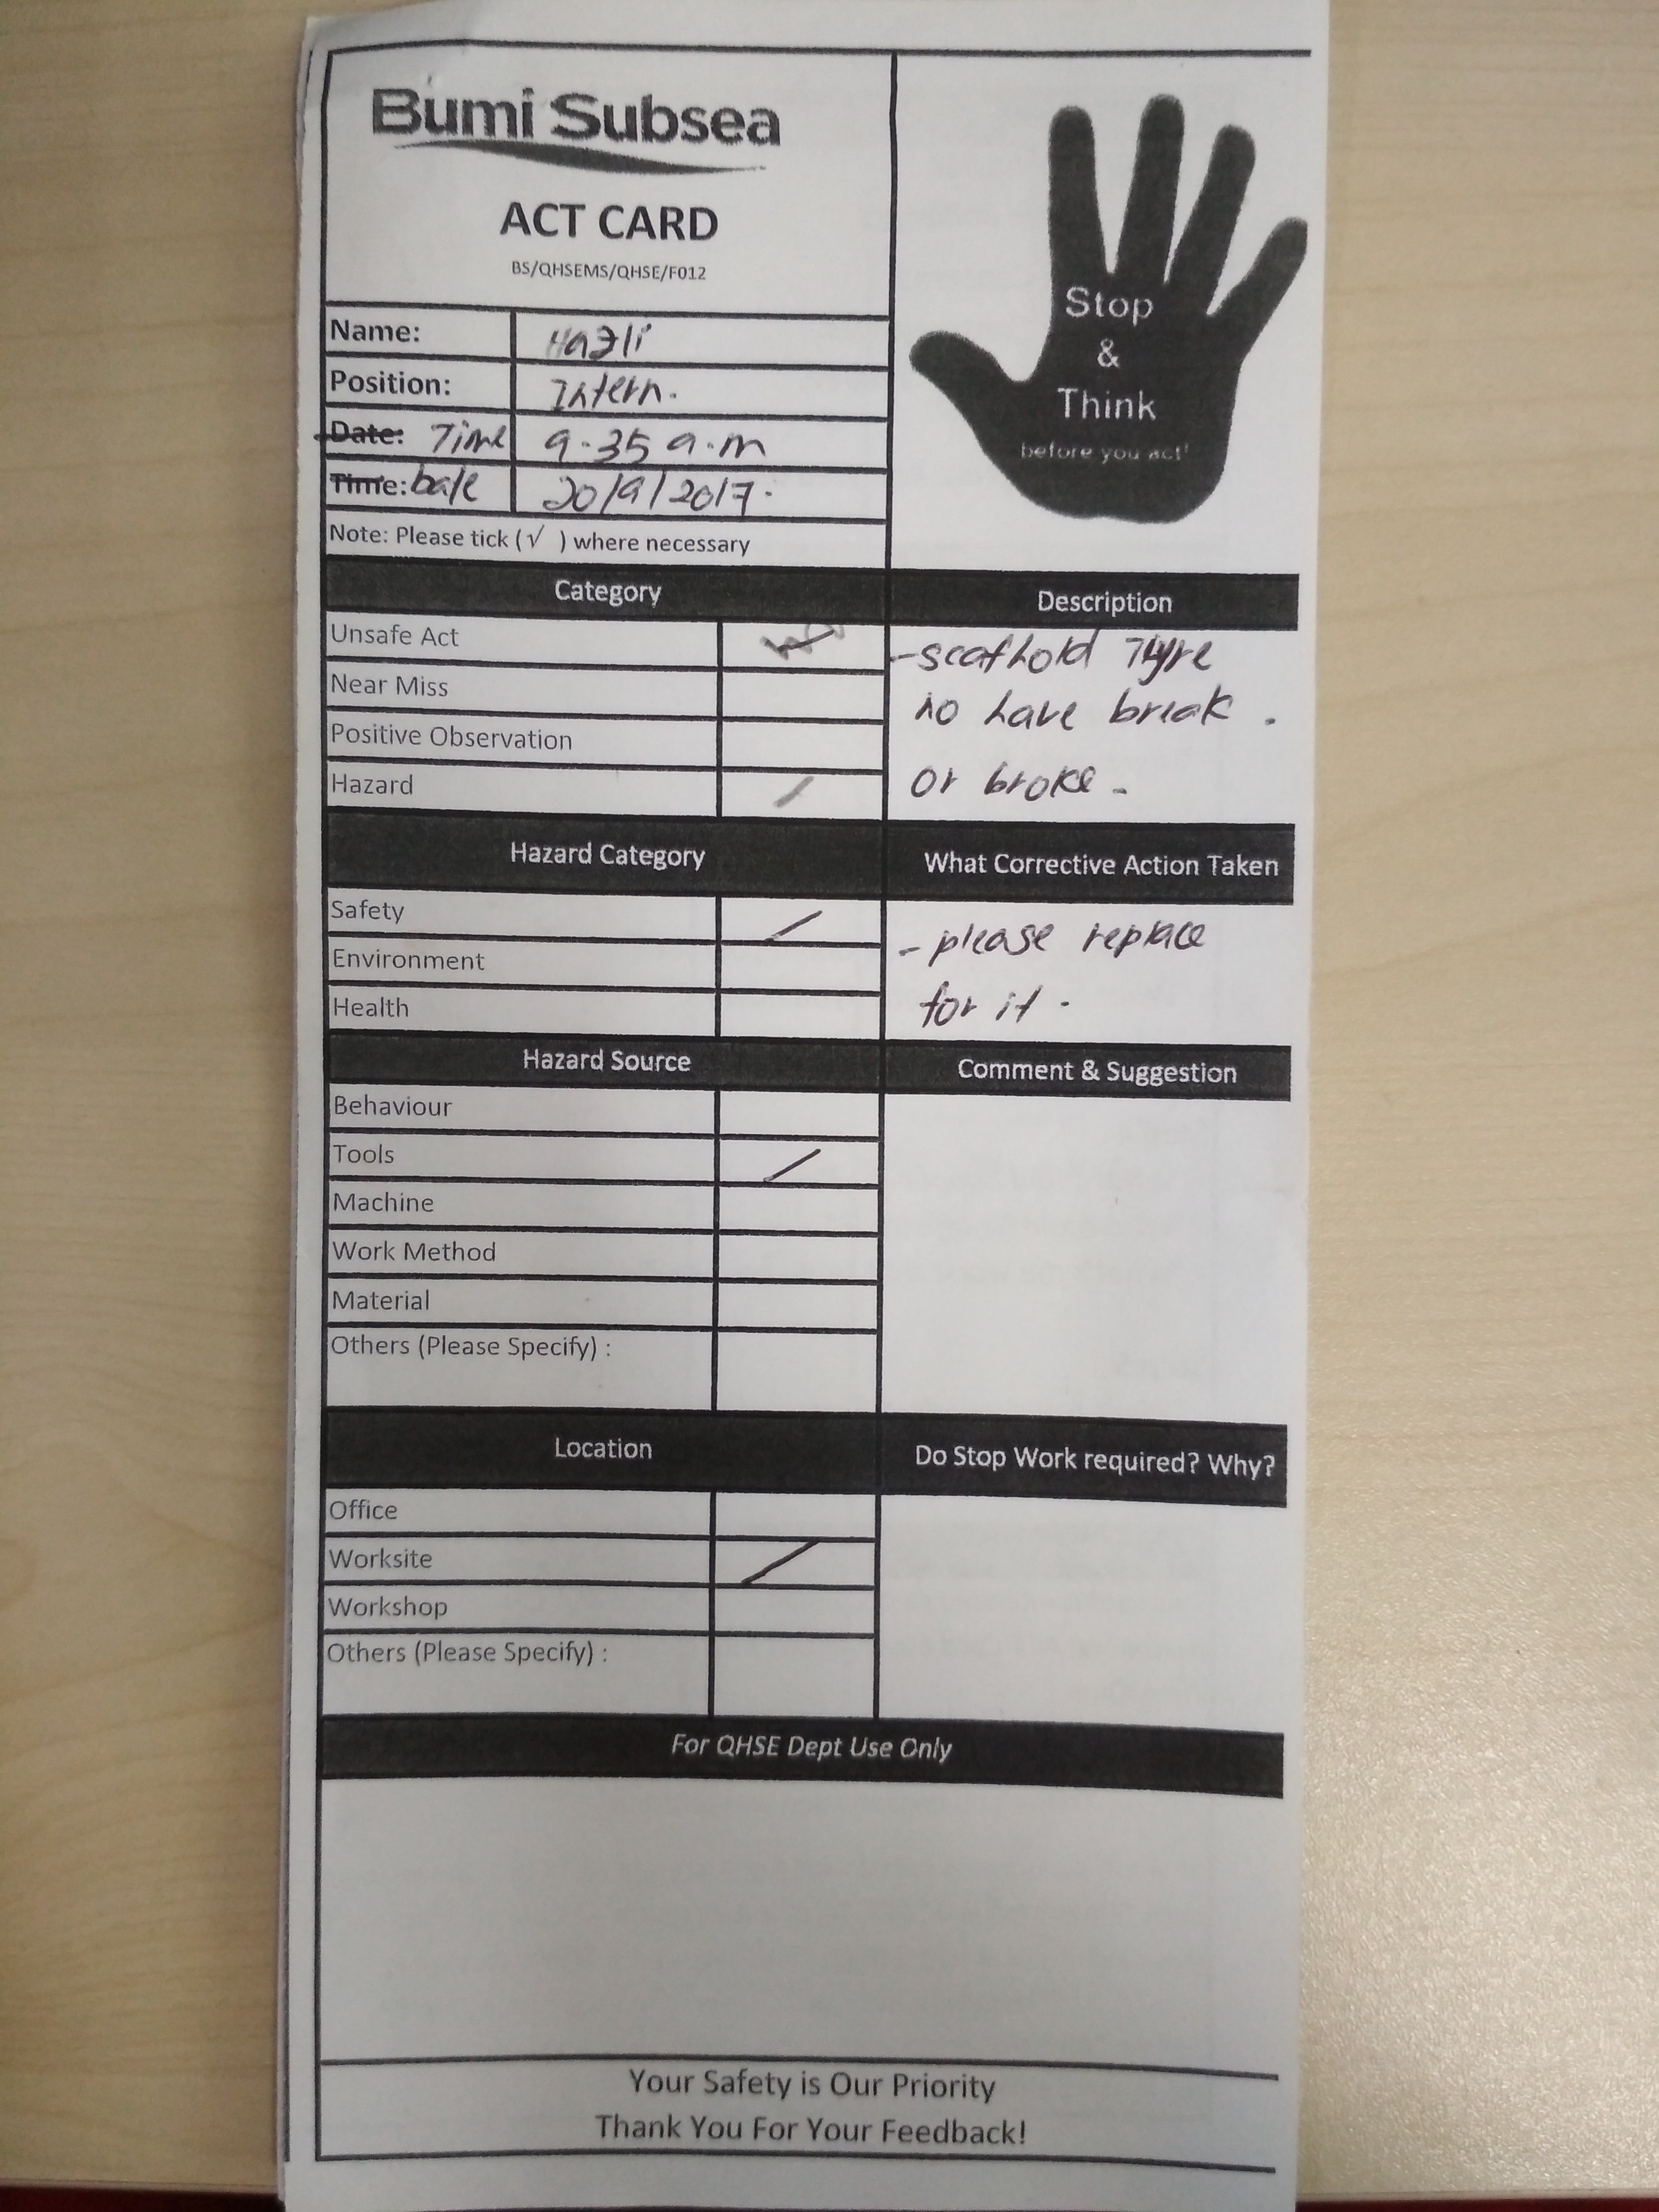 Bumi Subsea
ACT CARD
BS/QHSEMS/QHSE/F012
Stop
&
Think
before you act!
Name: Hazli
Position: Intern.
Date: Time 9.35 a.m
Time: Date 20/9/2017.
Note: Please tick (√ ) where necessary
Category
Unsafe Act
Near Miss
Positive Observation
Hazard /
Description
- scafhold Tyre
no have break .
or broke -
Hazard Category
Safety /
Environment
Health
What Corrective Action Taken
- please replace
for it .
Hazard Source
Behaviour
Tools /
Machine
Work Method
Material
Others (Please Specify) :
Comment & Suggestion
Location
Office
Worksite /
Workshop
Others (Please Specify) :
Do Stop Work required? Why?
For QHSE Dept Use Only
Your Safety is Our Priority
Thank You For Your Feedback!